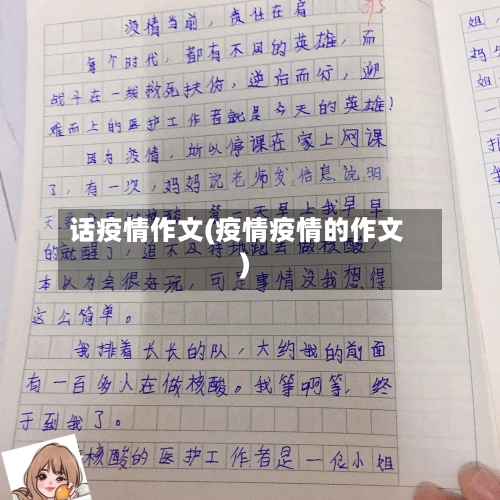 疫情当前，责任在肩
95
每个时代，都有不同的英雄，而
战斗在一线救死扶伤，逆行而行，迎
难而上的医护工作者就是今天的英雄！
因为疫情，所以停课在家上网课
了，有一次，妈妈说老师发信息说明
话疫情作文(疫情疫情的作文
)
的就醒了，
本以为会很好玩，可是事情没我想得
这么简单。
我排着长长的队，大约我的前面
有一百多人在做核酸。我等啊等，终
于到我了。
核酸的医护工作者是一位小姐
姐，